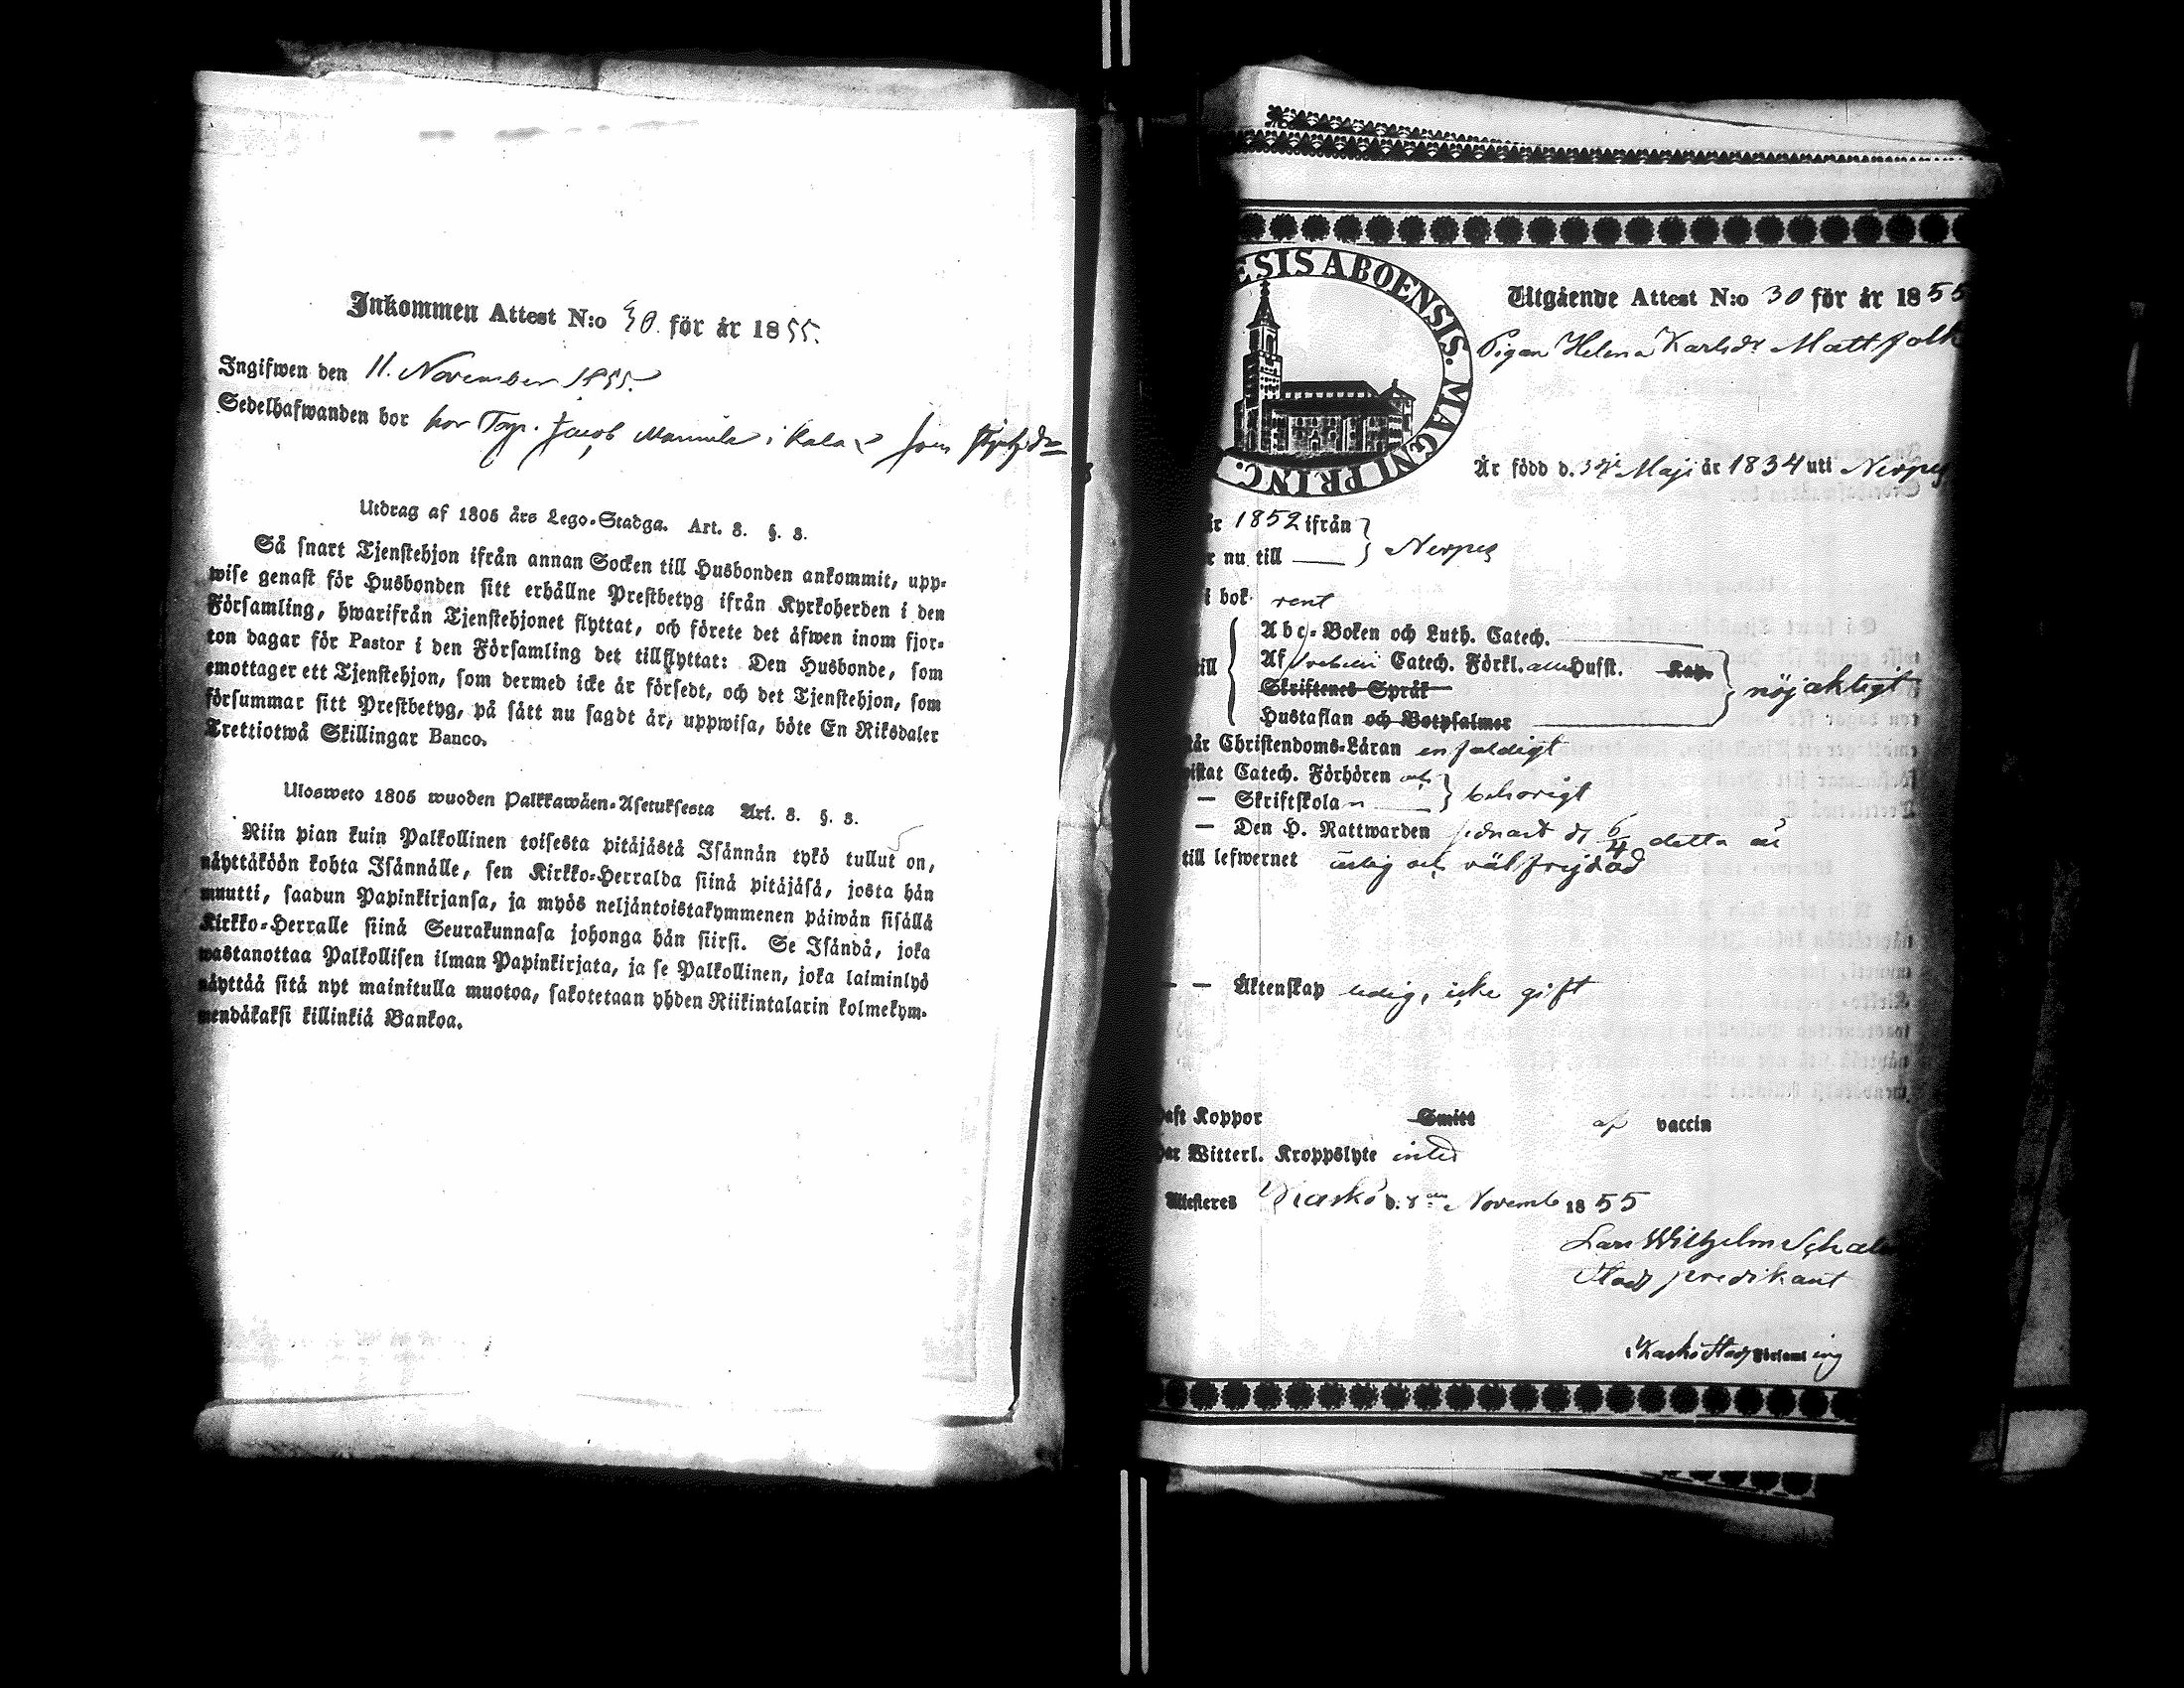 Inkommen Attest N:o 30. för år 1855.
Ingifwen den 11. November 1855.
Sedelhafwanden bor hos Torp. Jacob i
Utdrag af 1805 års Lego-Stadga. Art. 3. §. 3.
Så snart Tjenstehjon ifrån annan Socken till Husbonden ankommit, upp-
wise genast för Husbonden sitt erhållne Prestbetyg ifrån Kyrkoherden i den
Församling, hwarifrån Tjenstehjonet flyttat, och förete det äfwen inom fjor-
ton dagar för Pastor i den Församling det tillflyttat: Den Husbonde, som
emottager ett Tjenstehjon, som dermed icke är försedt, och det Tjenstehjon, som
försummar sitt Prestbetyg, på sätt nu sagdt är, uppwisa, böte En Riksdaler
Trettiotwå Skillingar Banco.
Ulosweto 1805 wuoden Palkkawäen-Asetuksesta Art. 3. §. 3.
Niin pian kuin Palkollinen toisesta pitäjästä Isännän tykö tullut on,
näyttäköön kohta Isännälle, sen Kirkko-Herralda siinä pitäjäsä, josta hän
muutti, saadun Papinkirjansa, ja myös neljäntoistakymmenen päiwän sisällä
Kirkko-Herralle siinä Seurakunnasa johonga hän siirsi. Se Isändä, joka
wastanottaa Palkollisen ilman Papinkirjata, ja se Palkollinen, joka laiminlyö
näyttää sitä nyt mainitulla muotoa, sakotetaan yhden Riikintalarin kolmekym-
mendäkaksi killinkiä Bankoa.
ESIS ABOENSIS. MAGNI PRINC.
Utgående Attest N:o 30 för år 1855
Pigan Helena Karlsdr Mattfolk
Är född d. Maji år 1834 uti Nerpes
år 1852 ifrån
r nu till Nerpes
i bok rent
Abc-Boken och Luth. Catech.
ill Af Svebelii Catech. Förkl. Husst. Kap.
Skriftenes Språk nöjaktigt
Hustaflan och Botpsalmer
tår Christendoms-Läran enfaldigt
wistat Catech. Förhören och
— Skriftskolan behörigt
— Den H. Nattwarden sednast d. 6/4 detta år
till lefwernet ärlig och välfrejdad
— — Äktenskap ledig, icke gift
haft Koppor Smitt af vaccin
har Witterl. Kroppslyte intet
Attesteres Kaskö d. 8de Novemb 1855
Lars Wilhelm
Stads predikant
Kaskö Stads Församling